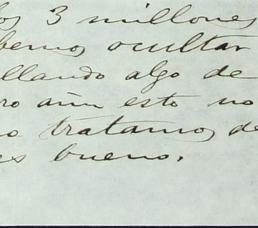 los 3 millones
bemos ocultar
llando algo de
ro aún esto no
no tratamos de
es bueno.